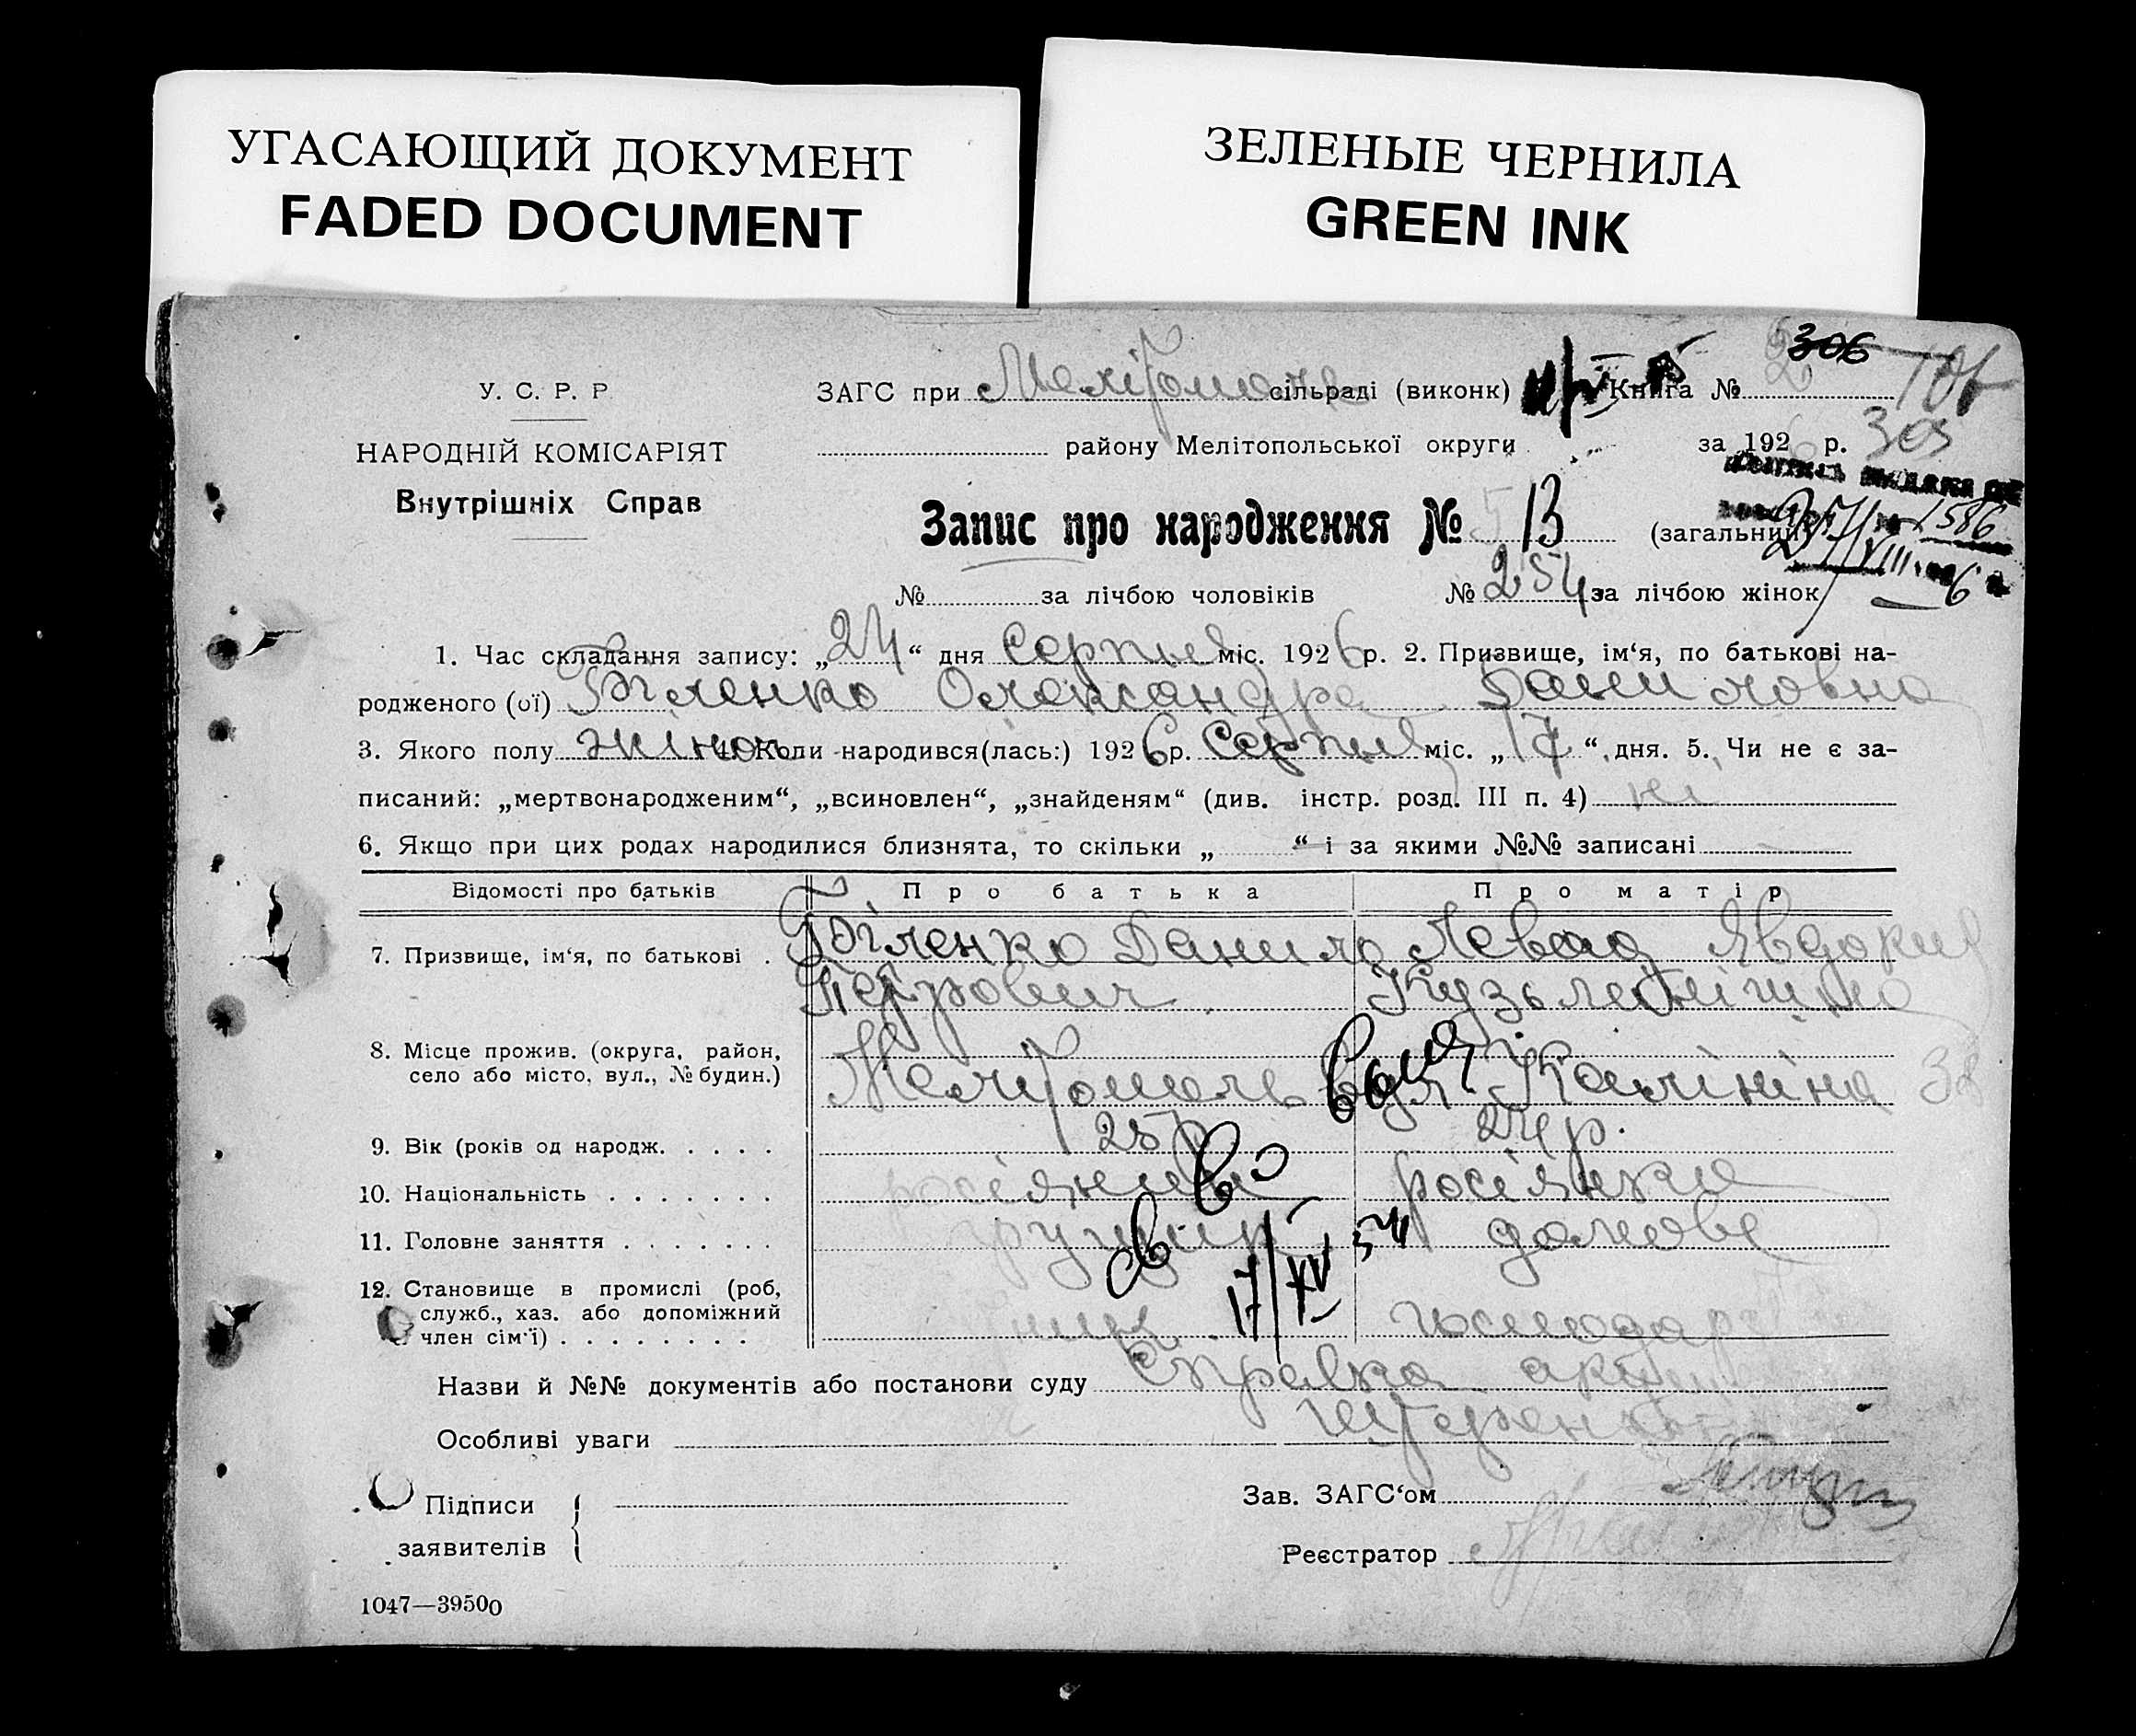 УГАСАЮЩИЙ ДОКУМЕНТ
FADED DOCUMENT
ЗЕЛЕНЫЕ ЧЕРНИЛА
GREEN INK
306
У. С. Р. Р.
ЗАГС при сільраді (виконк) Книга № 2
НАРОДНІЙ КОМІСАРІЯТ
Внутрішніх Справ
району Мелітопольської округи за 1926 р. 303
Запис про народження № 513 (загальний)
1586
№ за лічбою чоловіків № 254 за лічбою жінок
1. Час складання запису: „24“ дня серпня міс. 1926 р. 2. Призвище, ім‘я, по батькові на-
родженого (ої) Біленко Олександра Даниловна
3. Якого полу жіноч 4. Коли народився(лась:) 1926 р. серпня міс. „17“ дня. 5. Чи не є за-
писаний: „мертвонародженим“, „всиновлен“, „знайденям“ (див. інстр. розд. III п. 4) ні
6. Якщо при цих родах народилися близнята, то скільки „ “ і за якими №№ записані
Відомості про батьків Про батька Про матір
7. Призвище, ім‘я, по батькові . Біленко Данило Левад Явдокия
Петрович
8. Місце прожив. (округа, район,
село або місто, вул., № будин.) Мелітополь вул. Калініна 38
9. Вік (років од народж. . . . . 25 р. 24 р.
10. Національність . . . . . . . росіянин росіянка
11. Головне заняття . . . . . . . домове
12. Становище в промислі (роб,
служб., хаз. або допоміжний
член сім‘ї) . . . . . . . . господар
Назви й №№ документів або постанови суду Справка
Особливі уваги
Підписи
заявителів
Зав. ЗАГС‘ом
Реєстратор
1047—39500